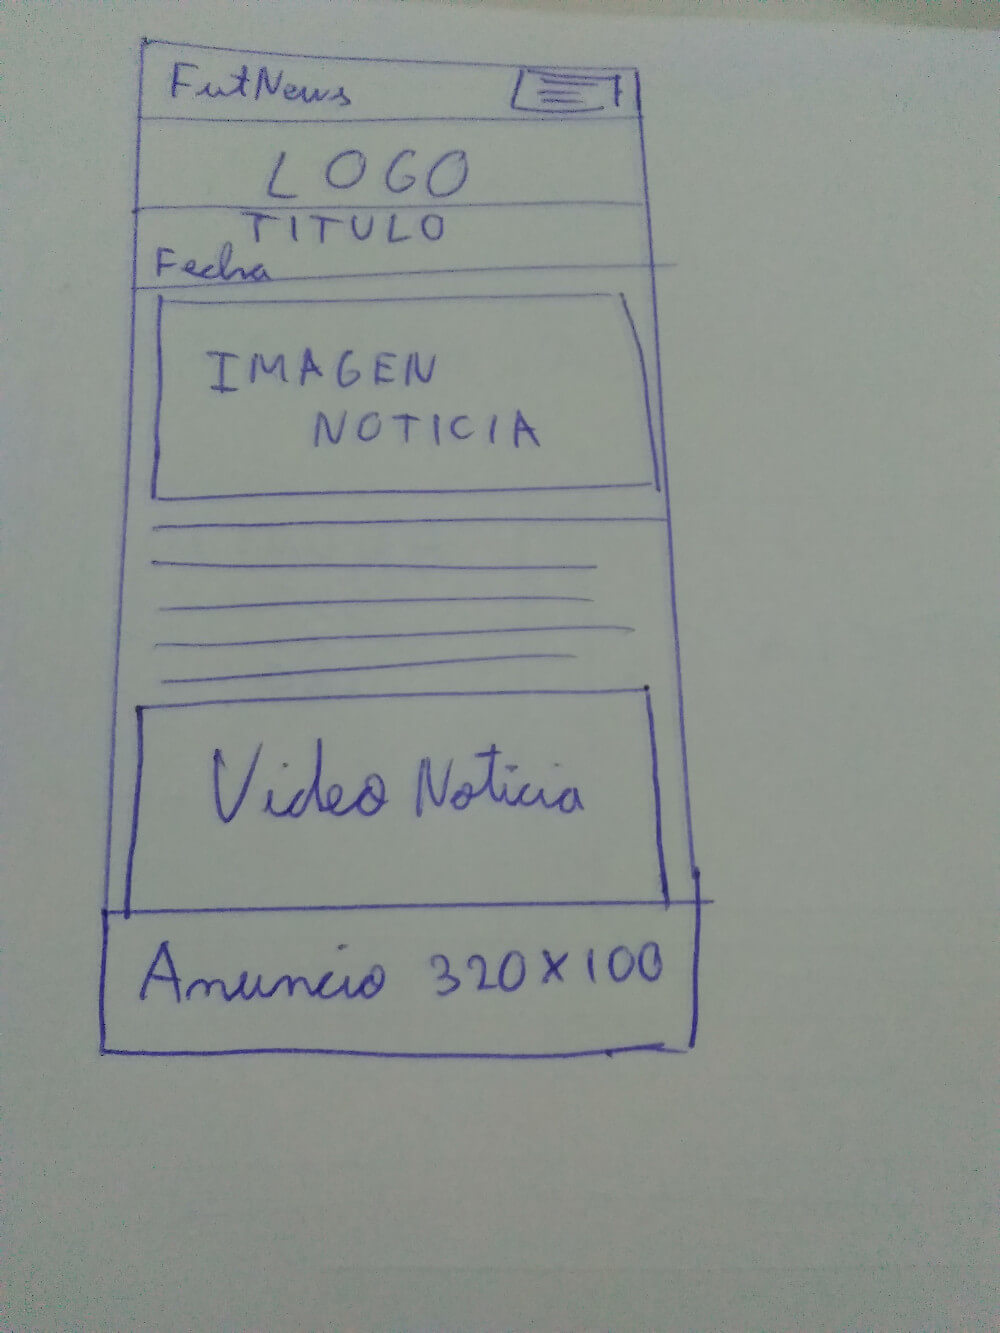 FutNews
LOGO
TITULO
Fecha
IMAGEN
NOTICIA
Video Noticia
Anuncio 320x100